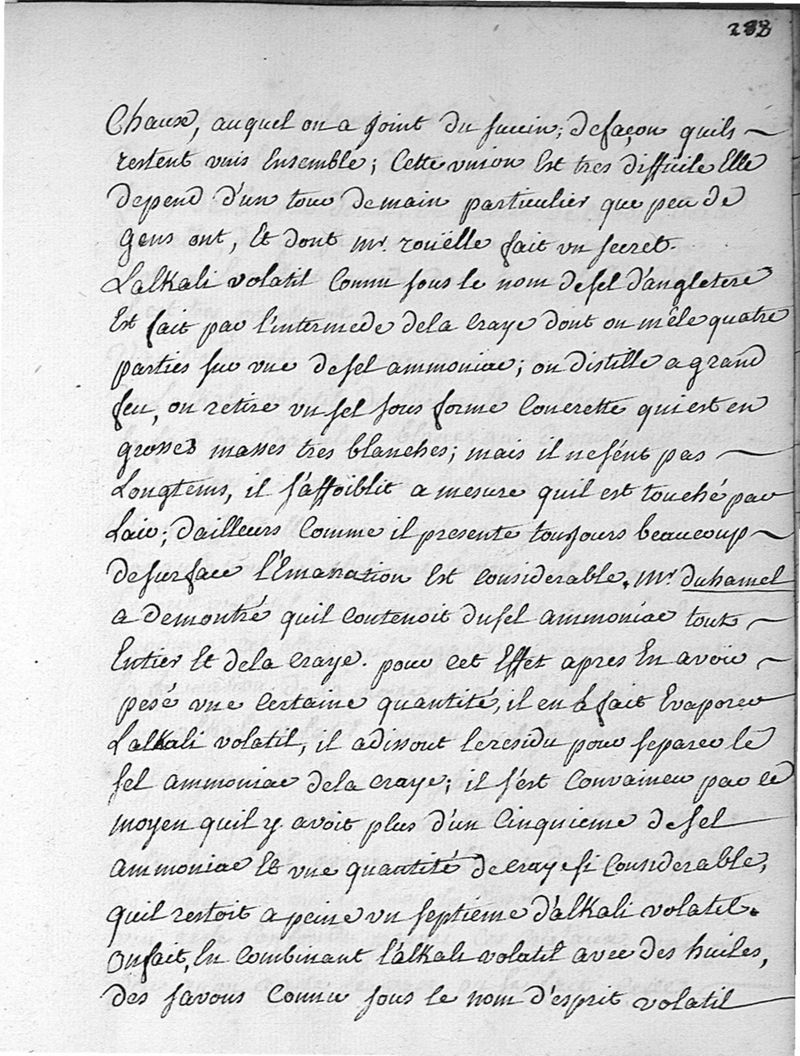 288
Chaux, auquel on a joint du succin; defaçon quils
restent unis Ensemble; Cette union Est tres difficile Elle
depend d'un tour de main particulier que peu de
gens ont, Et dont mr. rouëlle fait un secret.
Lalkali volatil Connu sous le nom de sel d'angletere
Est fait par l'intermede dela Craye dont on mêle quatre
parties sur une de sel ammoniac; on distille a grand
feu, on retire un sel sous forme Concrette qui est en
grosses masses tres blanches; mais il ne sént pas
Longtems, il s'affoiblit a mesure quil est touché par
Lair; d'ailleurs Comme il presente toujours beaucoup
de surface l'Emanation Est considerable. mr. duhamel
a demontré quil contenoit du sel ammoniac tout
Entier Et dela Craye. pour cet Effet apres En avoir
pesé une Certaine quantité, il en a fait Evaporer
Lalkali volatil, il a dissout le residu pour separer le
sel ammoniac dela craye; il s'est Convaincu par ce
moyen quil y avoit plus d'un Cinquieme de sel
ammoniac Et une quantité de craye si Considerable,
quil restoit a peine un septieme d'alkali volatil.
On fait, En Combinant l'alkali volatil avec des huiles,
des savons Connu sous le nom d'esprit volatil